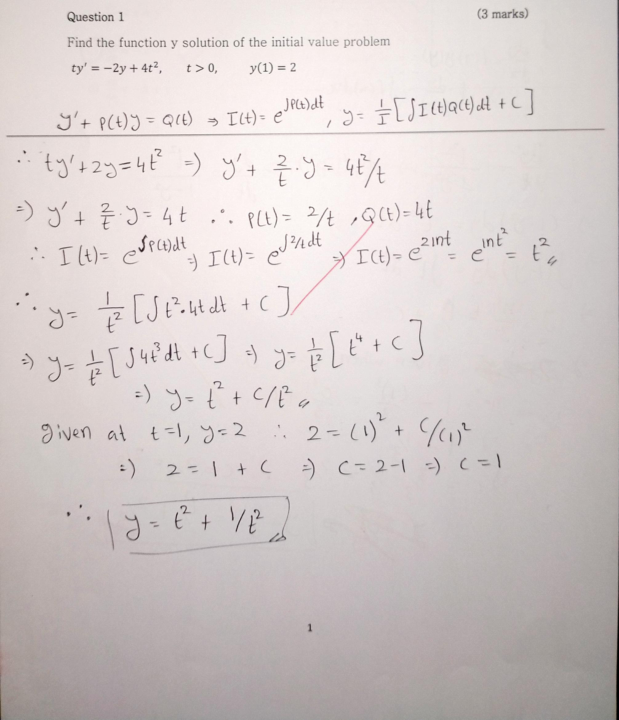 Question 1 (3 marks)
Find the function y solution of the initial value problem
ty′ = −2y + 4t², t > 0, y(1) = 2
y' + P(t)y = Q(t) ⇒ I(t) = e^∫P(t)dt, y = 1/I [∫I(t)Q(t)dt + C]
∴ ty' + 2y = 4t² ⇒ y' + 2/t · y = 4t²/t
⇒ y' + 2/t · y = 4t ∴ P(t) = 2/t, Q(t) = 4t
∴ I(t) = e^∫P(t)dt ⇒ I(t) = e^∫2/t dt ⇒ I(t) = e^2lnt = e^lnt² = t²
∴ y = 1/t² [∫t²·4t dt + C]
⇒ y = 1/t² [∫4t³dt + C] ⇒ y = 1/t² [t⁴ + C]
⇒ y = t² + C/t²
given at t=1, y=2 ∴ 2 = (1)² + C/(1)²
⇒ 2 = 1 + C ⇒ C = 2-1 ⇒ C = 1
∴ y = t² + 1/t²
1